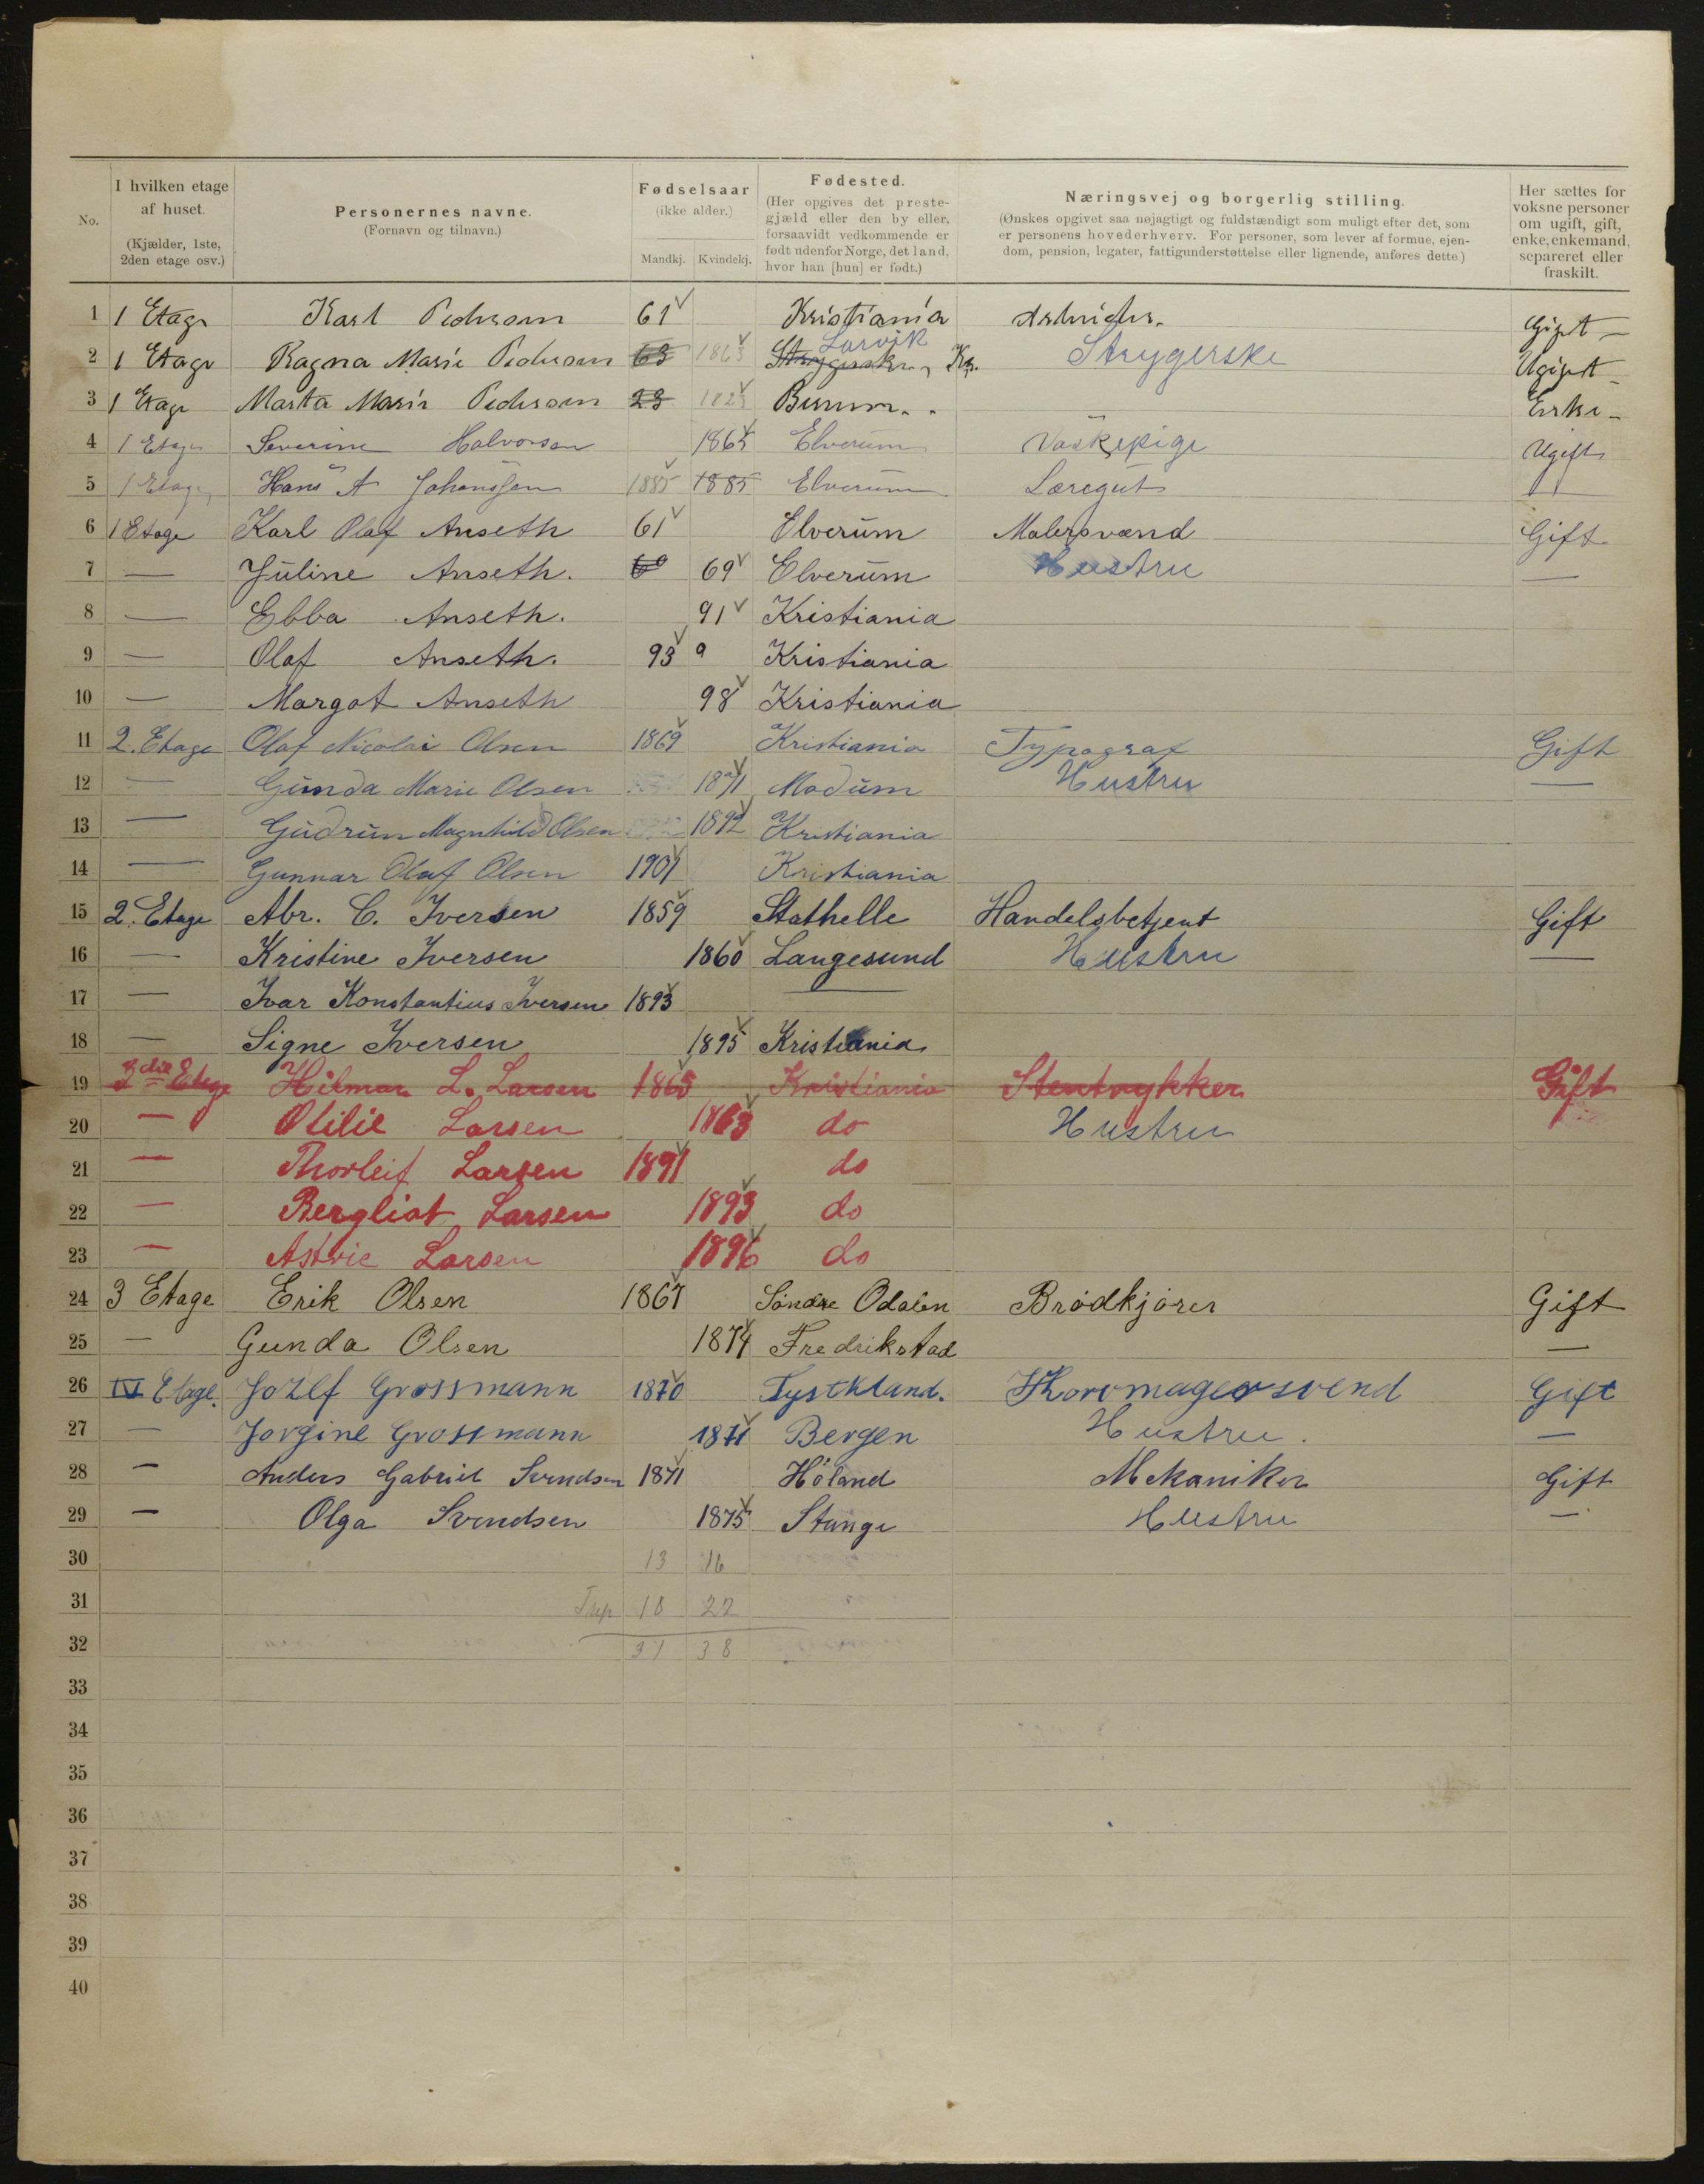 No.
I hvilken etage
af huset.
(Kjælder, 1ste,
2den etage osv.)
Personernes navne.
(Fornavn og tilnavn.)
Fødselsaar
(ikke alder.)
Mandkj. Kvindekj.
Fødested.
(Her opgives det preste-
gjæld eller den by eller,
forsaavidt vedkommende er
født udenfor Norge, det land,
hvor han [hun] er født.)
Næringsvej og borgerlig stilling.
(Ønskes opgivet saa nøjagtigt og fuldstændigt som muligt efter det, som
er personens hovederhverv. For personer, som lever af formue, ejen-
dom, pension, legater, fattigunderstøttelse eller lignende, anføres dette)
Her sættes for
voksne personer
om ugift, gift,
enke, enkemand,
separeret eller
fraskilt.
1 1 Etage Karl Pedersen 61 Kristiania Gift
Larvik
2 1 Etage Ragna Marie Pedersen 63 1863 Strygerske Kr. Strygerske Ugift
3 1 Etage Marta Marie Pedersen 23 1823 Burum Enke
4 1 Etage Severine Halvorsen 1865 Elverum Vaskepige Ugift
5 1 Etage Hans A Johanssen 1885 1885 Elverum Læregut
6 1 Etage Karl Olaf Anseth 61 Elverum Malersvend Gift
7 — Juline Anseth. 69 Elverum Hustru —
8 — Ebba Anseth. 91 Kristiania
9 — Olaf Anseth. 93 Kristiania
10 — Margot Anseth 98 Kristiania
11 2. Etage Olaf Nicolai Olsen 1869 Kristiania Typograf Gift
12 — Gunda Marie Olsen 1871 Modum Hustru —
13 — Gudrun Magnhild Olsen 1892 Kristiania
14 — Gunnar Olaf Olsen 1901 Kristiania
15 2. Etage Abr. C. Iversen 1859 Stathelle Handelsbetjent Gift
16 — Kristine Iversen 1860 Langesund Hustru —
17 — Ivar Konstantius Iversen 1893 —
18 — Signe Iversen 1895 Kristiania
19 3die Etage Hilmar L. Larsen 1865 Kristiania Stentrykker Gift
20 — Otilie Larsen 1863 do Hustru
21 — Thorleif Larsen 1891 do
22 — Bergliot Larsen 1893 do
23 — Astrie Larsen 1896 do
24 3 Etage Erik Olsen 1867 Søndre Odalen Brødkjører Gift
25 — Gunda Olsen 1874 Fredrikstad —
26 IV Etage. Jozef Grossmann 1870 Tystkland. Skoromagersvend Gift
27 — Jorgine Grossmann 1871 Bergen Hustru. —
28 — Anders Gabriel Svendsen 1871 Høland Mekaniker Gift
29 — Olga Svendsen 1875 Stange Hustru —
30 13 16
31 18 22
32 31 38
33
34
35
36
37
38
39
40